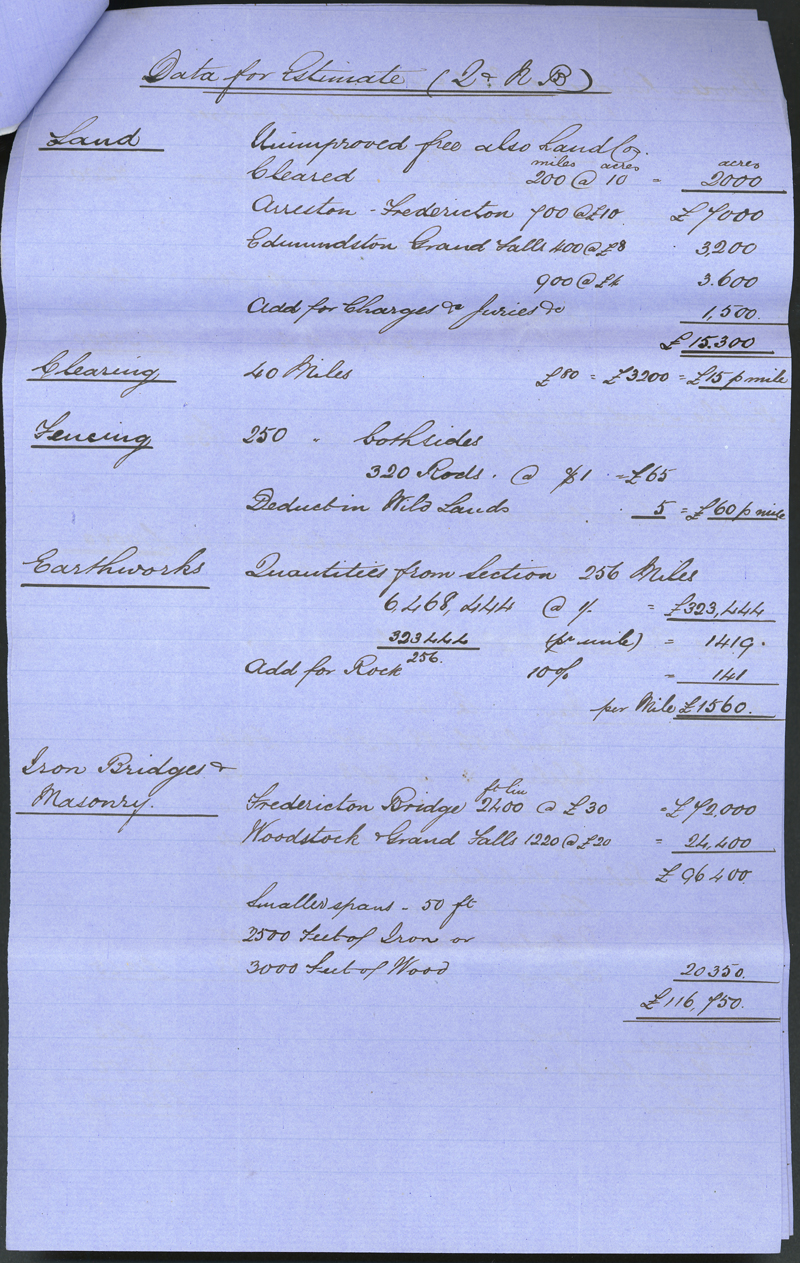 Data for Estimate (Q & R B)
Land Unimproved free also Land Co.
miles acres acres
Cleared 200 @ 10 = 2000
Arreston - Fredericton 700 @ £10 £7000
Edmundston Grand Falls 400 @ £8 3,200
900 @ £4 3.600
Add for Charges &c Juries &c 1,500.
£15.300
Clearing 40 Miles £80 = £3200 = £15 p mile
Fencing 250 " both sides
320 Rods. @ $1 = £65
Deduct in Wild Lands 5 = £60 p mile
Earthworks Quantities from Section 256 Miles
6,468,444 @ 1/ = £323,444
323444 (pr mile) = 1419.
256.
Add for Rock 10% = 141
per Mile £1560.
Iron Bridges &
Masonry.
ft lin
Fredericton Bridge 2400 @ £30 = £72,000
Woodstock & Grand Falls 1220 @ £20 = 24,400
£96400.
Smaller spans - 50 ft
2500 Feet of Iron or
3000 Feet of Wood 20350.
£116,750.